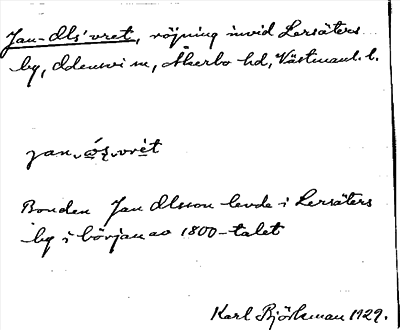 Jan-Ols'vret, röjning invid Lersäters
by, Odensvi sn, Åkerbo hd, Västmanl. l.
Bonden Jan Olsson levde i Lersäters
by i början av 1800-talet
Karl Björkman 1929.